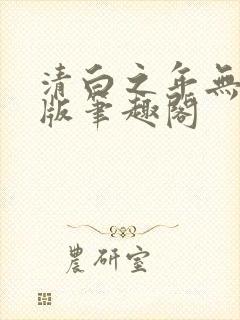 清白之年無
版筆趣閣
農研室